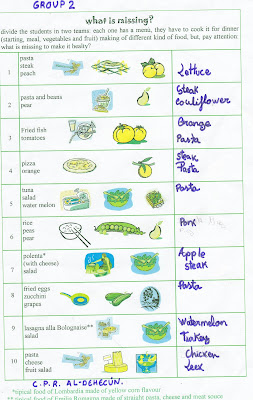 GROUP 2
what is missing?
divide the students in two teams. each one has a menu, they have to cook it for dinner
(starting, meal, vegetables and fruit) making of different kind of food, but, pay attention:
what is missing to make it healty?
1 pasta
steak
peach
Lettuce
2 pasta and beans
pear
Steak
couliflower
3 Fried fish
tomatoes
Orange
Pasta
4 pizza
orange
steak
Pasta
5 tuna
salad
water melon
Pasta
6 rice
peas
pear
Pork
7 polenta*
(with cheese)
salad
Apple
steak
8 fried eggs
zucchini
grapes
Pasta
9 lasagna alla Bolognaise**
salad
Watermelon
Turkey
10 pasta
cheese
fruit salad
Chicken
Leex
C.P.R. AL-DEHECUN.
*tipical food of Lombardia made of yellow corn flavour
** tipical food of Emilia Romagna made of straight pasta, cheese and meat souce